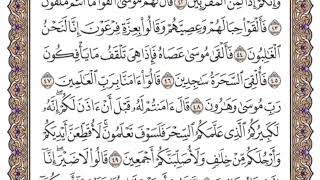 وَإِنَّكُمْ إِذًا لَّمِنَ ٱلْمُقَرَّبِينَ ٤٢ قَالَ لَهُم مُّوسَىٰٓ أَلْقُوا۟ مَآ أَنتُم مُّلْقُونَ
٤٣ فَأَلْقَوْا۟ حِبَالَهُمْ وَعِصِيَّهُمْ وَقَالُوا۟ بِعِزَّةِ فِرْعَوْنَ إِنَّا لَنَحْنُ
ٱلْغَٰلِبُونَ ٤٤ فَأَلْقَىٰ مُوسَىٰ عَصَاهُ فَإِذَا هِىَ تَلْقَفُ مَا يَأْفِكُونَ
٤٥ فَأُلْقِىَ ٱلسَّحَرَةُ سَٰجِدِينَ ٤٦ قَالُوٓا۟ ءَامَنَّا بِرَبِّ ٱلْعَٰلَمِينَ ٤٧
رَبِّ مُوسَىٰ وَهَٰرُونَ ٤٨ قَالَ ءَامَنتُمْ لَهُۥ قَبْلَ أَنْ ءَاذَنَ لَكُمْ إِنَّهُۥ
لَكَبِيرُكُمُ ٱلَّذِى عَلَّمَكُمُ ٱلسِّحْرَ فَلَسَوْفَ تَعْلَمُونَ لَأُقَطِّعَنَّ أَيْدِيَكُمْ
وَأَرْجُلَكُم مِّنْ خِلَٰفٍ وَلَأُصَلِّبَنَّكُمْ أَجْمَعِينَ ٤٩ قَالُوا۟ لَا ضَيْرَ إِنَّآ